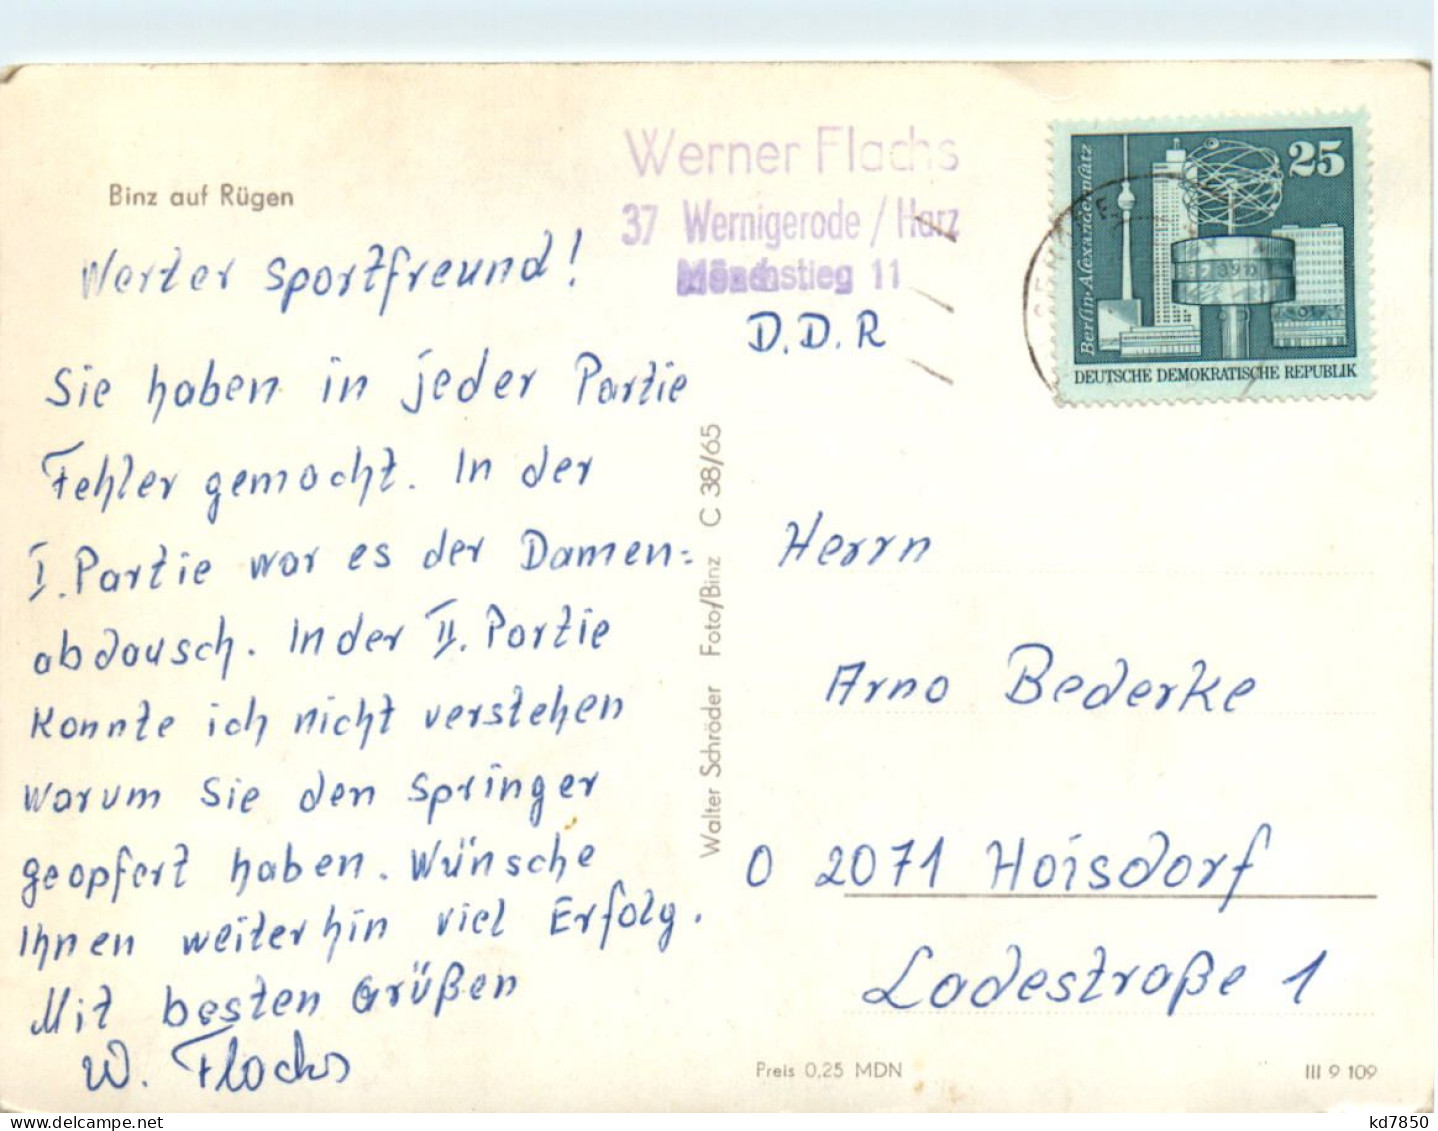 Binz auf Rügen
Werter Sportfreund!
Sie haben in jeder Partie
Fehler gemacht. In der
I. Partie war es der Damen=
abdausch. In der II. Partie
konnte ich nicht verstehen
warum Sie den Springer
geopfert haben. Wünsche
Ihnen weiterhin viel Erfolg.
Mit besten Grüßen
W. Flachs
Walter Schröder Foto/Binz C 38/65
Werner Flachs
37 Wernigerode / Harz
Mönchstieg 11
D.D.R
25
Berlin-Alexanderplatz
DEUTSCHE DEMOKRATISCHE REPUBLIK
Herrn
Arno Bederke
O 2071 Hoisdorf
Ladestraße 1
Preis 0,25 MDN
III 9 109
kd7850